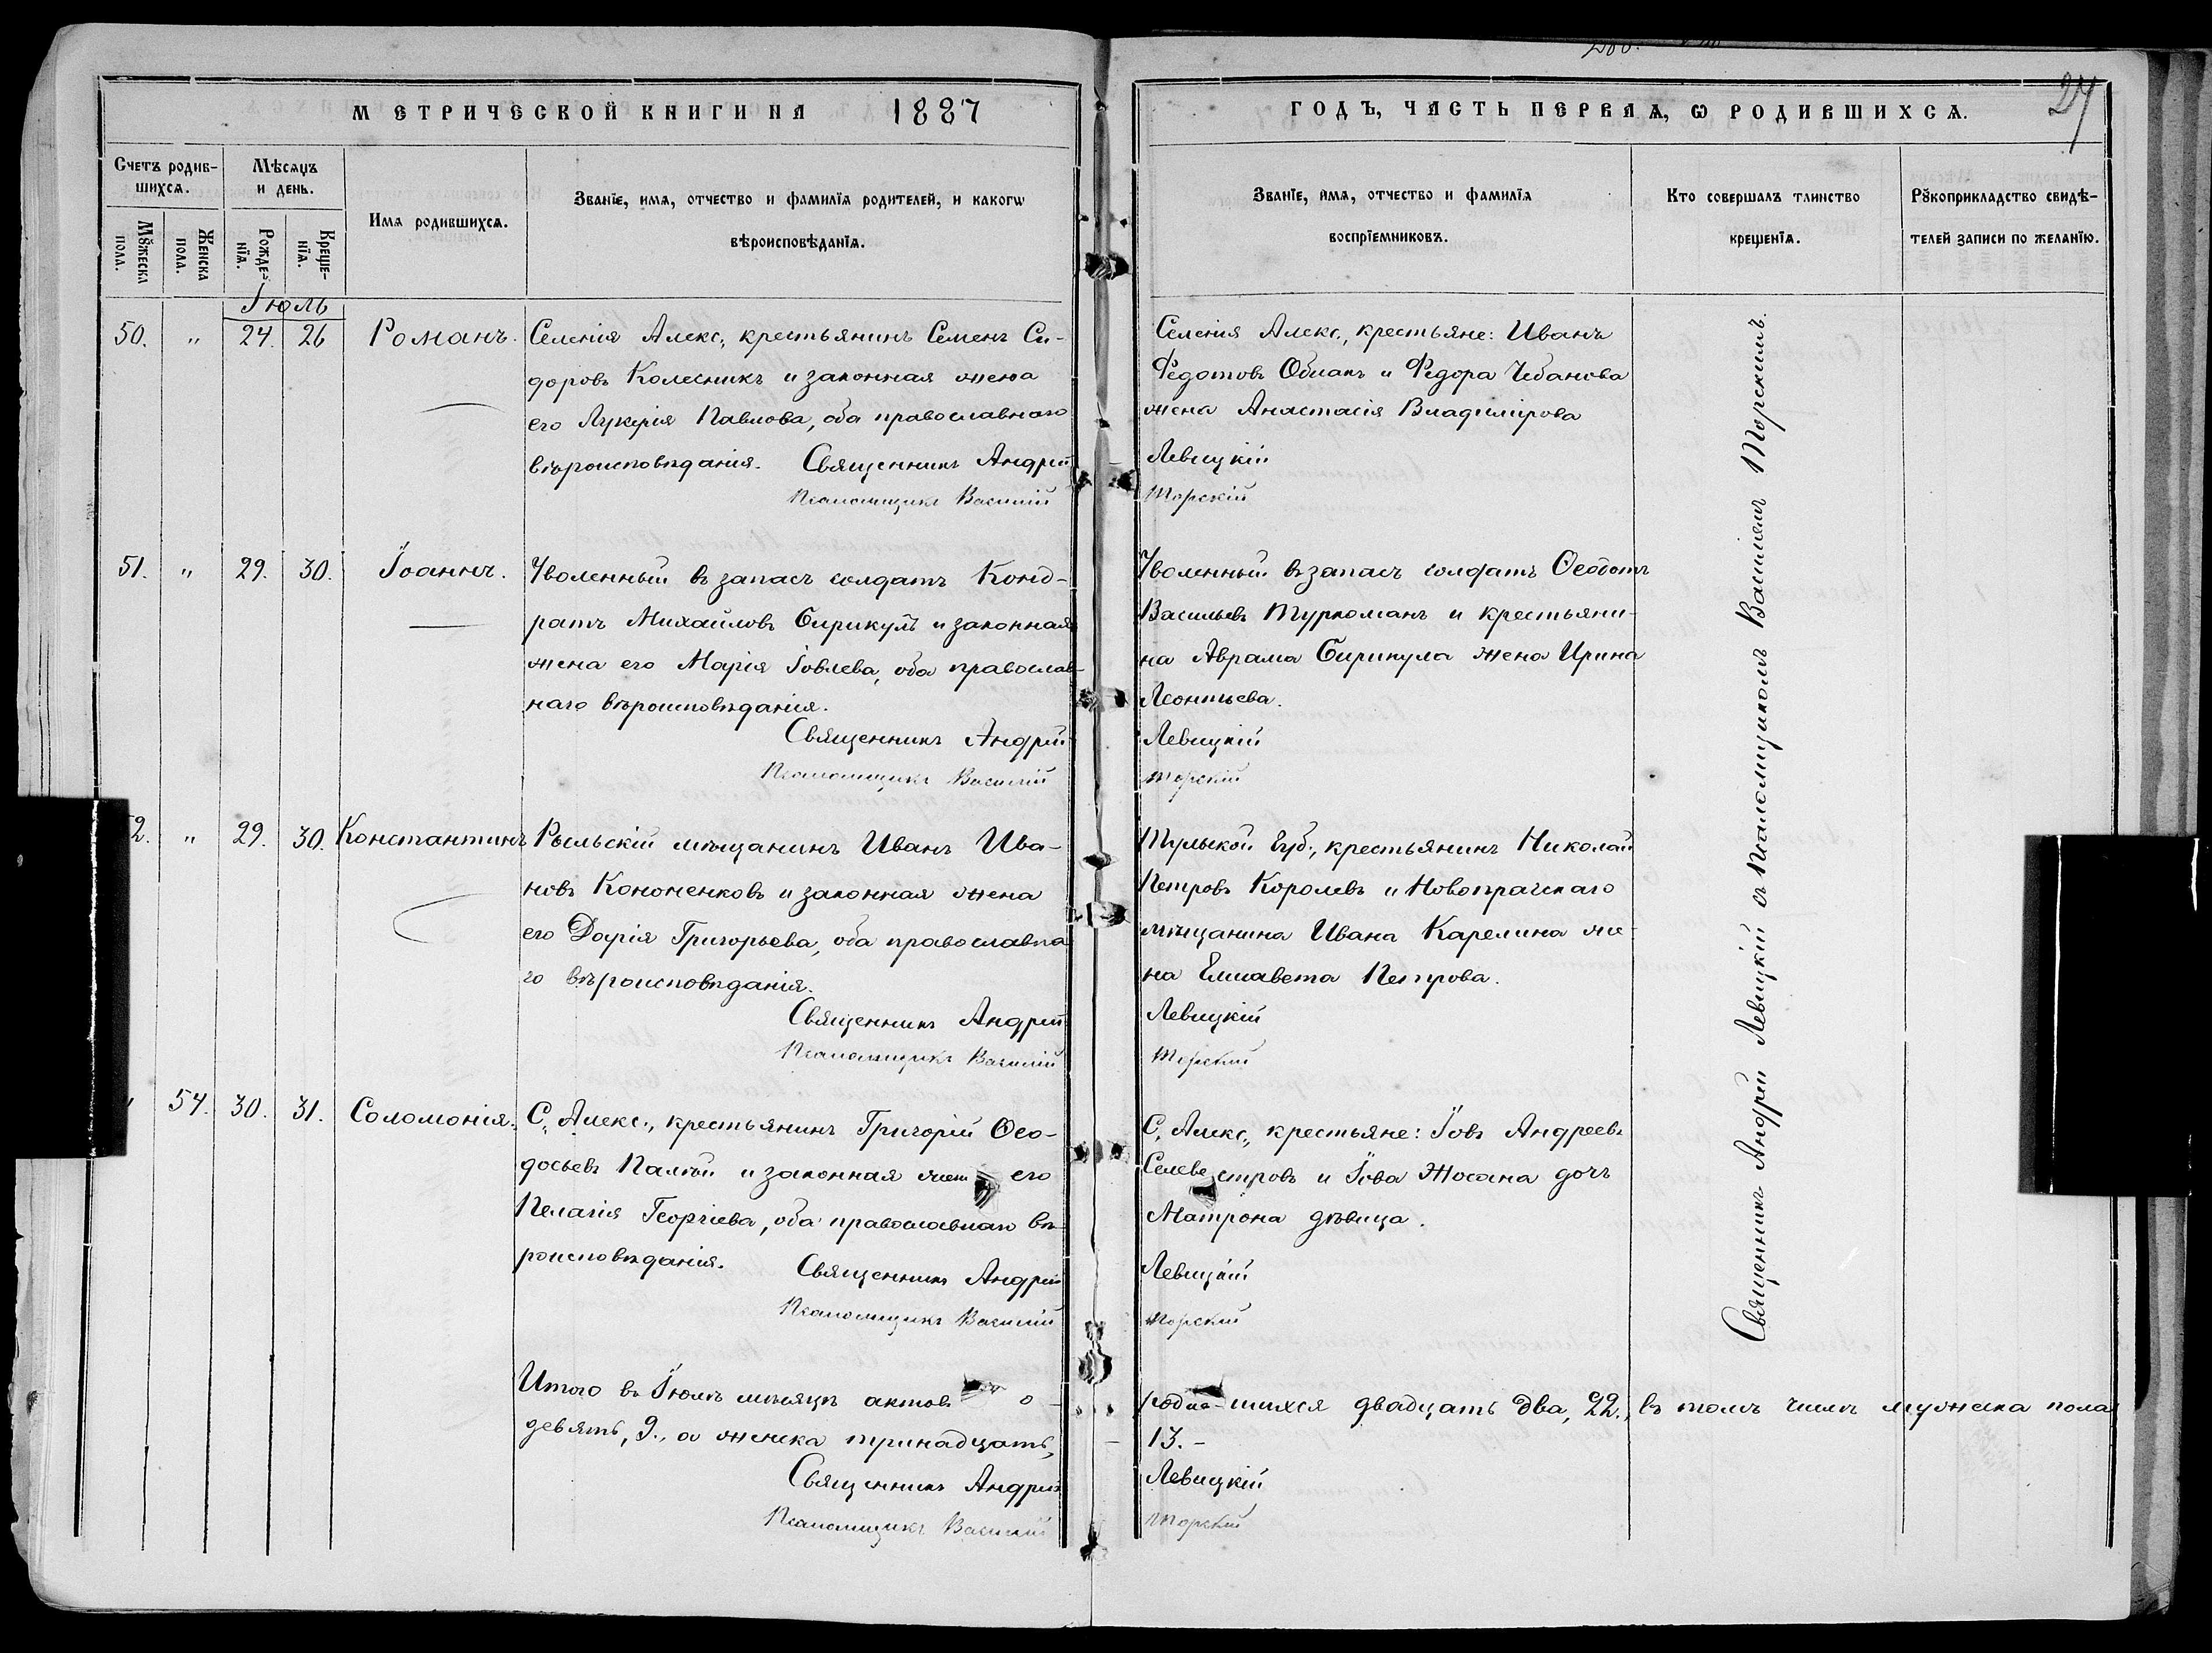 МЕТРИЧЕСКОЙ КНИГИ НА 1887
ГОДЪ, ЧАСТЬ ПЕРВАѦ, Ѡ РОДИВШИХСѦ.
27
Счетъ родив-
шихсѧ.
Мѣсѧцъ
и день.
Мꙋжеска
пола.
Женска
пола.
Рожде-
нїѧ.
Креще-
нїѧ.
Имѧ родившихсѧ.
Званїе, имѧ, отчество и фамилїѧ родителей, и какогѡ
вѣроисповѣданїѧ.
Званїе, имѧ, отчество и фамилїѧ
воспрїемниковъ.
Кто совершалъ таинство
крещенїѧ.
Рꙋкоприкладство свидѣ-
телей записи по желанїю.
Іюль
50. " 24. 26 Романъ.
Селенія Алекс., крестьянинъ Семенъ Си-
доровъ Колесникъ и законная жена
его Лукерія Павлова, оба православнаго
вѣроисповѣданія. Священникъ Андрей
Псаломщикъ Василій
Селенія Алекс., крестьяне: Иванъ
Федотовъ Обманъ и Федора Чебанова
жена Анастасія Владимірова
Левицкій
Торскій
51. " 29. 30. Іоаннъ.
Уволенный въ запасъ солдатъ Конд-
ратъ Михайловъ Бирикулъ и законная
жена его Марія Іовлева, оба православ-
наго вѣроисповѣданія.
Священникъ Андрей
Псаломщикъ Василій
Уволенный въ запасъ солдатъ Ѳеодотъ
Васильевъ Туркоманъ и крестьяни-
на Аврама Бирикула жена Ирина
Леонтьева.
Левицкій
Торскій
2. " 29. 30. Константинъ
Рыльскій мѣщанинъ Иванъ Ива-
новъ Кононенковъ и законная жена
его Дарія Григорьева, оба православна
го вѣроисповѣданія.
Священникъ Андрей
Псаломщикъ Василій
Тульской губ., крестьянинъ Николай
Петровъ Королевъ и Новопражскаго
мѣщанина Ивана Карелина же-
на Елисавета Петрова.
Левицкій
Торскій
54. 30. 31. Соломонія.
С. Алекс., крестьянинъ Григорій Ѳео-
досьевъ Палій и законная жен его
Пелагія Георгіева, оба православнаго вѣ-
роисповѣданія. Священникъ Андрей
Псаломщикъ Василій
С. Алекс., крестьяне: Іовъ Андреевъ
Селевестровъ и Іова Жосана дочь
Матрона дѣвица.
Левицкій
Торскій
Священникъ Андрей Левицкій съ Псаломщикомъ Василіемъ Торскимъ.
Итого въ Іюлѣ мѣсяцѣ актовъ о
родившихся двадцать два, 22., въ томъ числѣ мужеска пола
девять, 9., а женска тринадцать,
13. -
Священникъ Андрей
Левицкій
Псаломщикъ Василій
Торскій